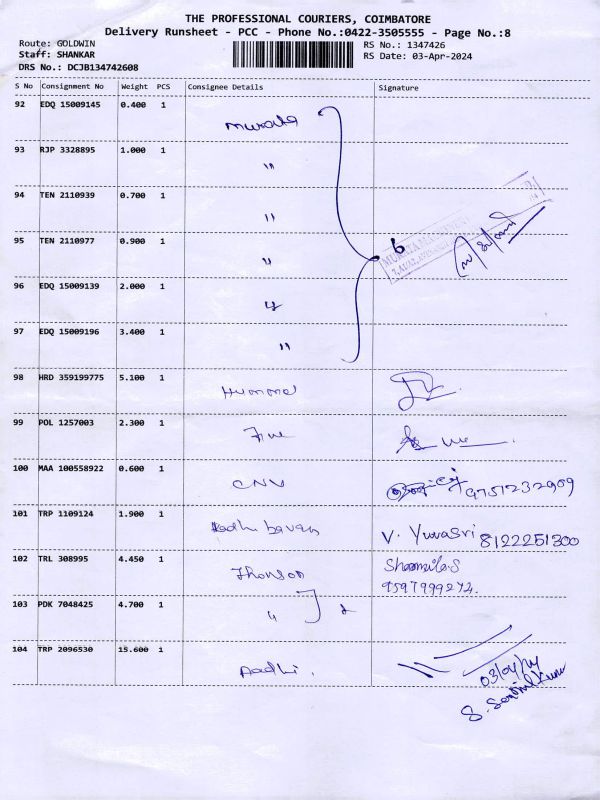 THE PROFESSIONAL COURIERS, COIMBATORE
Delivery Runsheet - PCC - Phone No.:0422-3505555 - Page No.:8
Route: GOLDWIN
RS No.: 1347426
Staff: SHANKAR
RS Date: 03-Apr-2024
DRS No.: DCJB134742608
S No Consignment No Weight PCS Consignee Details Signature
92 EDQ 15009145 0.400 1 Murata
93 RJP 3328895 1.000 1 "
94 TEN 2110939 0.700 1 "
95 TEN 2110977 0.900 1 " 6
96 EDQ 15009139 2.000 1 "
97 EDQ 15009196 3.400 1 "
98 HRD 359199775 5.100 1
99 POL 1257003 2.300 1
100 MAA 100558922 0.600 1 CNV 9751232909
101 TRP 1109124 1.900 1 V. Yuvasri 8122251300
102 TRL 308995 4.450 1 Thonson Sharmila.S
9597999274.
103 PDK 7048425 4.700 1 " 2
104 TRP 2096530 15.600 1 Aadhi.
03/04/24